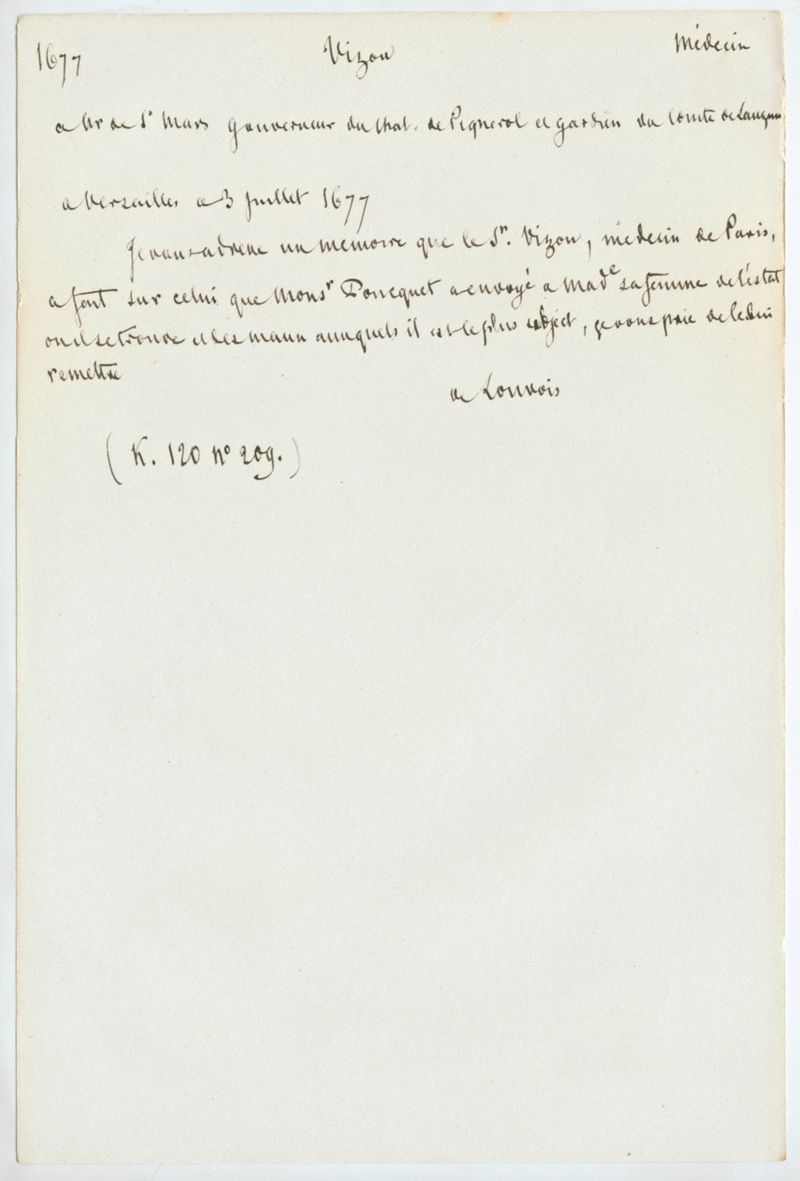 1677 Vizon Médecin
a Mr de St Mars gouverneur du chat. de Pignerol et gardien du Comte de Lauzun
a Versailles a 3 Juillet 1677
Je vous adresse un memoire que le Sr. Vizon, medecin de Paris,
a fait sur celui que Monsr Foucquet a envoyé a Made sa femme de l'éstat
ou il se trouve et les maux auxquels il est le plus subject, je vous prie de le lui
remettre
de Louvois
(K. 120 no 209.)